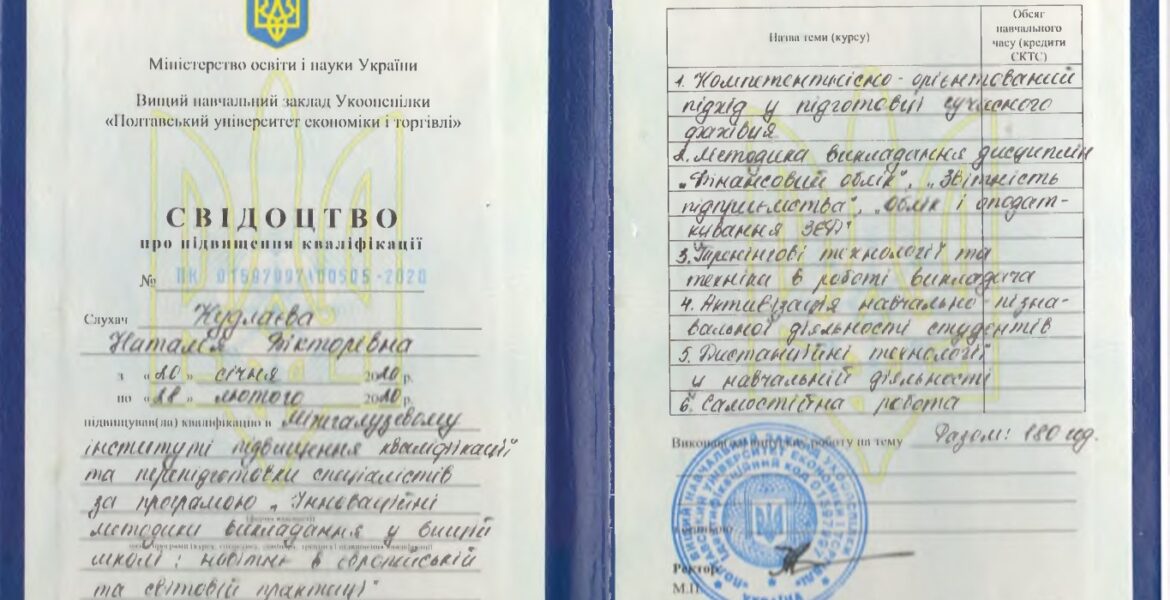 Міністерство освіти і науки України
Вищий навчальний заклад Укоопспілки
«Полтавський університет економіки і торгівлі»
СВІДОЦТВО
про підвищення кваліфікації
№ ПК 01597997\00505-2020
Слухач Кудлаєва
Наталія Вікторівна
з «20» січня 2020 р.
по «28» лютого 2020 р.
підвищував(ла) кваліфікацію в Міжгалузевому
інституті підвищення кваліфікації
та перепідготовки спеціалістів
за програмою „Інноваційні
методики викладання у вищій
школі: новітнє в європейській
та світовій практиці"
Назва теми (курсу)
Обсяг
навчального
часу (кредити
ЄКТС)
1. Компетентнісно-орієнтований
підхід у підготовці сучасного
фахівця
2. Методика викладання дисциплін
„Фінансовий облік", „Звітність
підприємства", „Облік і оподат-
кування ЗЕД"
3. Тренінгові технології та
техніка в роботі викладача
4. Активізація навчально-пізна-
вальної діяльності студентів
5. Дистанційні технології
у навчальній діяльності
6. Самостійна робота
Виконав(ла) випускну роботу на тему Разом: 180 год.
Ректор
М.П.
УКРАЇНА